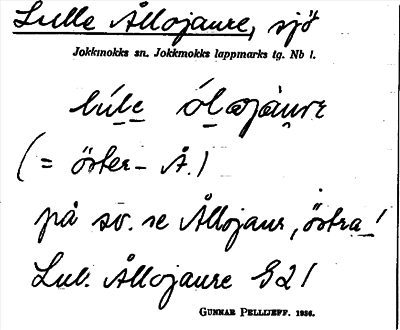 Lulle Ållojaure, sjö
Jokkmokks sn. Jokkmokks lappmarks tg. Nb l.
lúle ólojáure
(= öster- Å.)
på sv. se Ållojaur, östra!
Lul. Ållojaure G2!
GUNNAR PELLIJEFF. 1936.